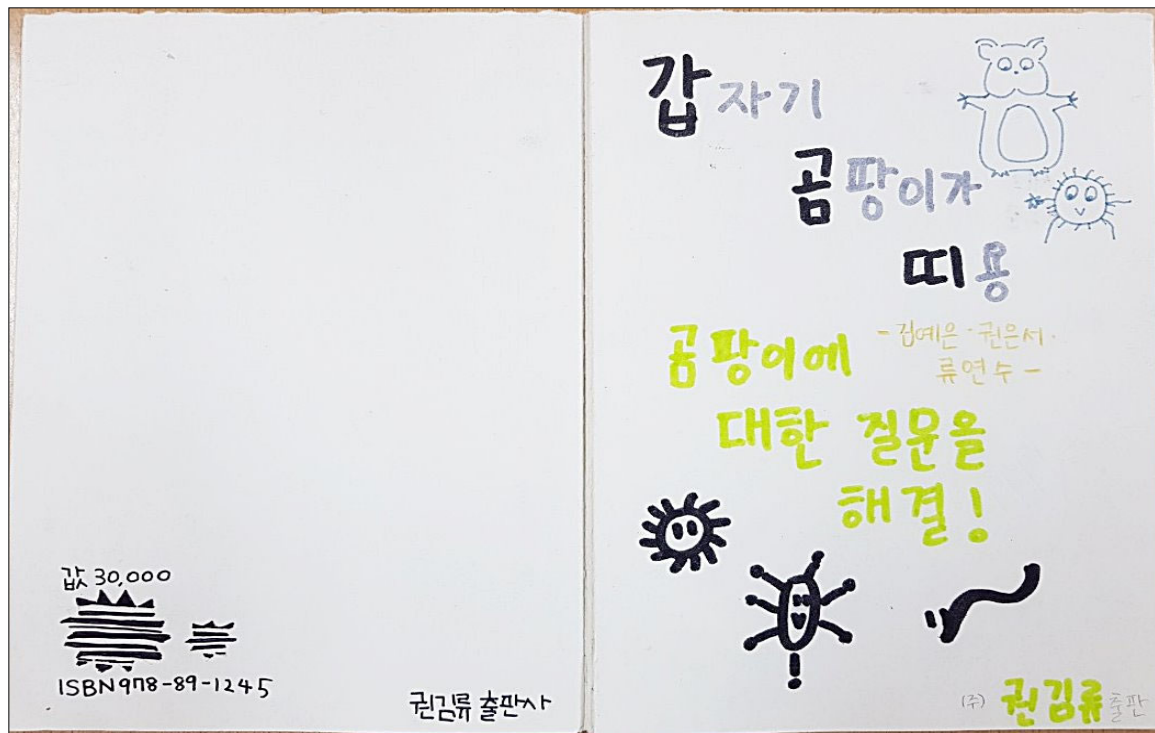 값 30,000
ISBN 978-89-1245
권김류 출판사
갑자기
곰팡이가
띠용
-김예은·권은서·
류연수-
곰팡이에
대한 질문을
해결!
(주) 권김류 출판